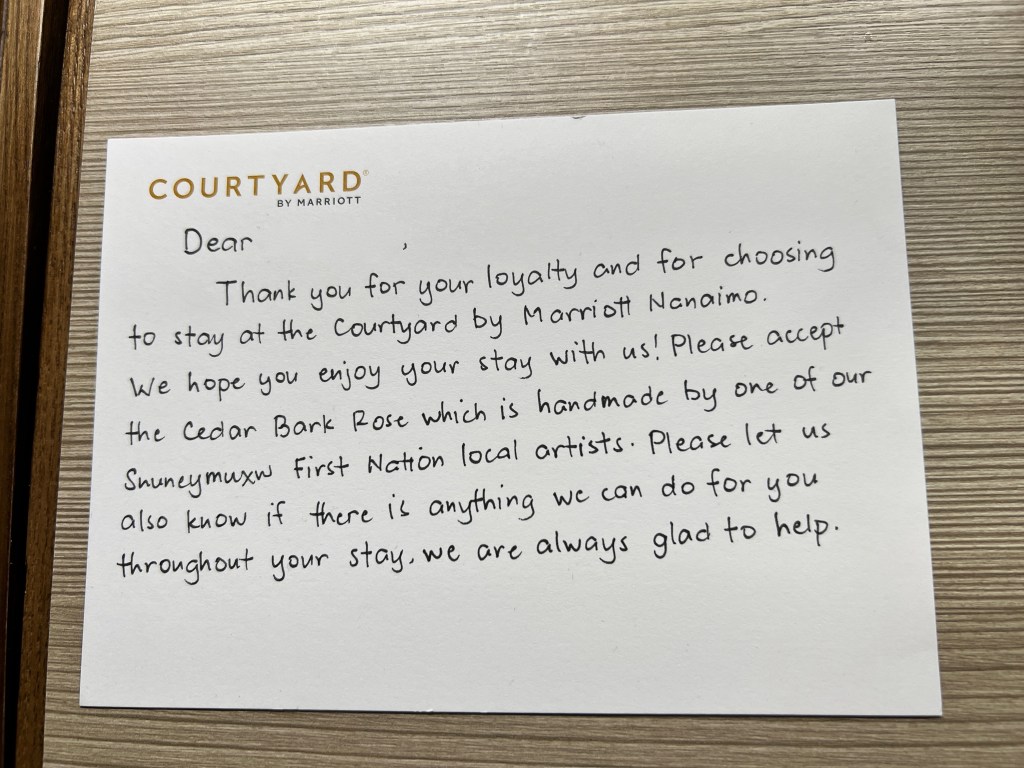 COURTYARD®
BY MARRIOTT
Dear ,
Thank you for your loyalty and for choosing
to stay at the Courtyard by Marriott Nanaimo.
We hope you enjoy your stay with us! Please accept
the Cedar Bark Rose which is handmade by one of our
Snuneymuxw First Nation local artists. Please let us
also know if there is anything we can do for you
throughout your stay, we are always glad to help.